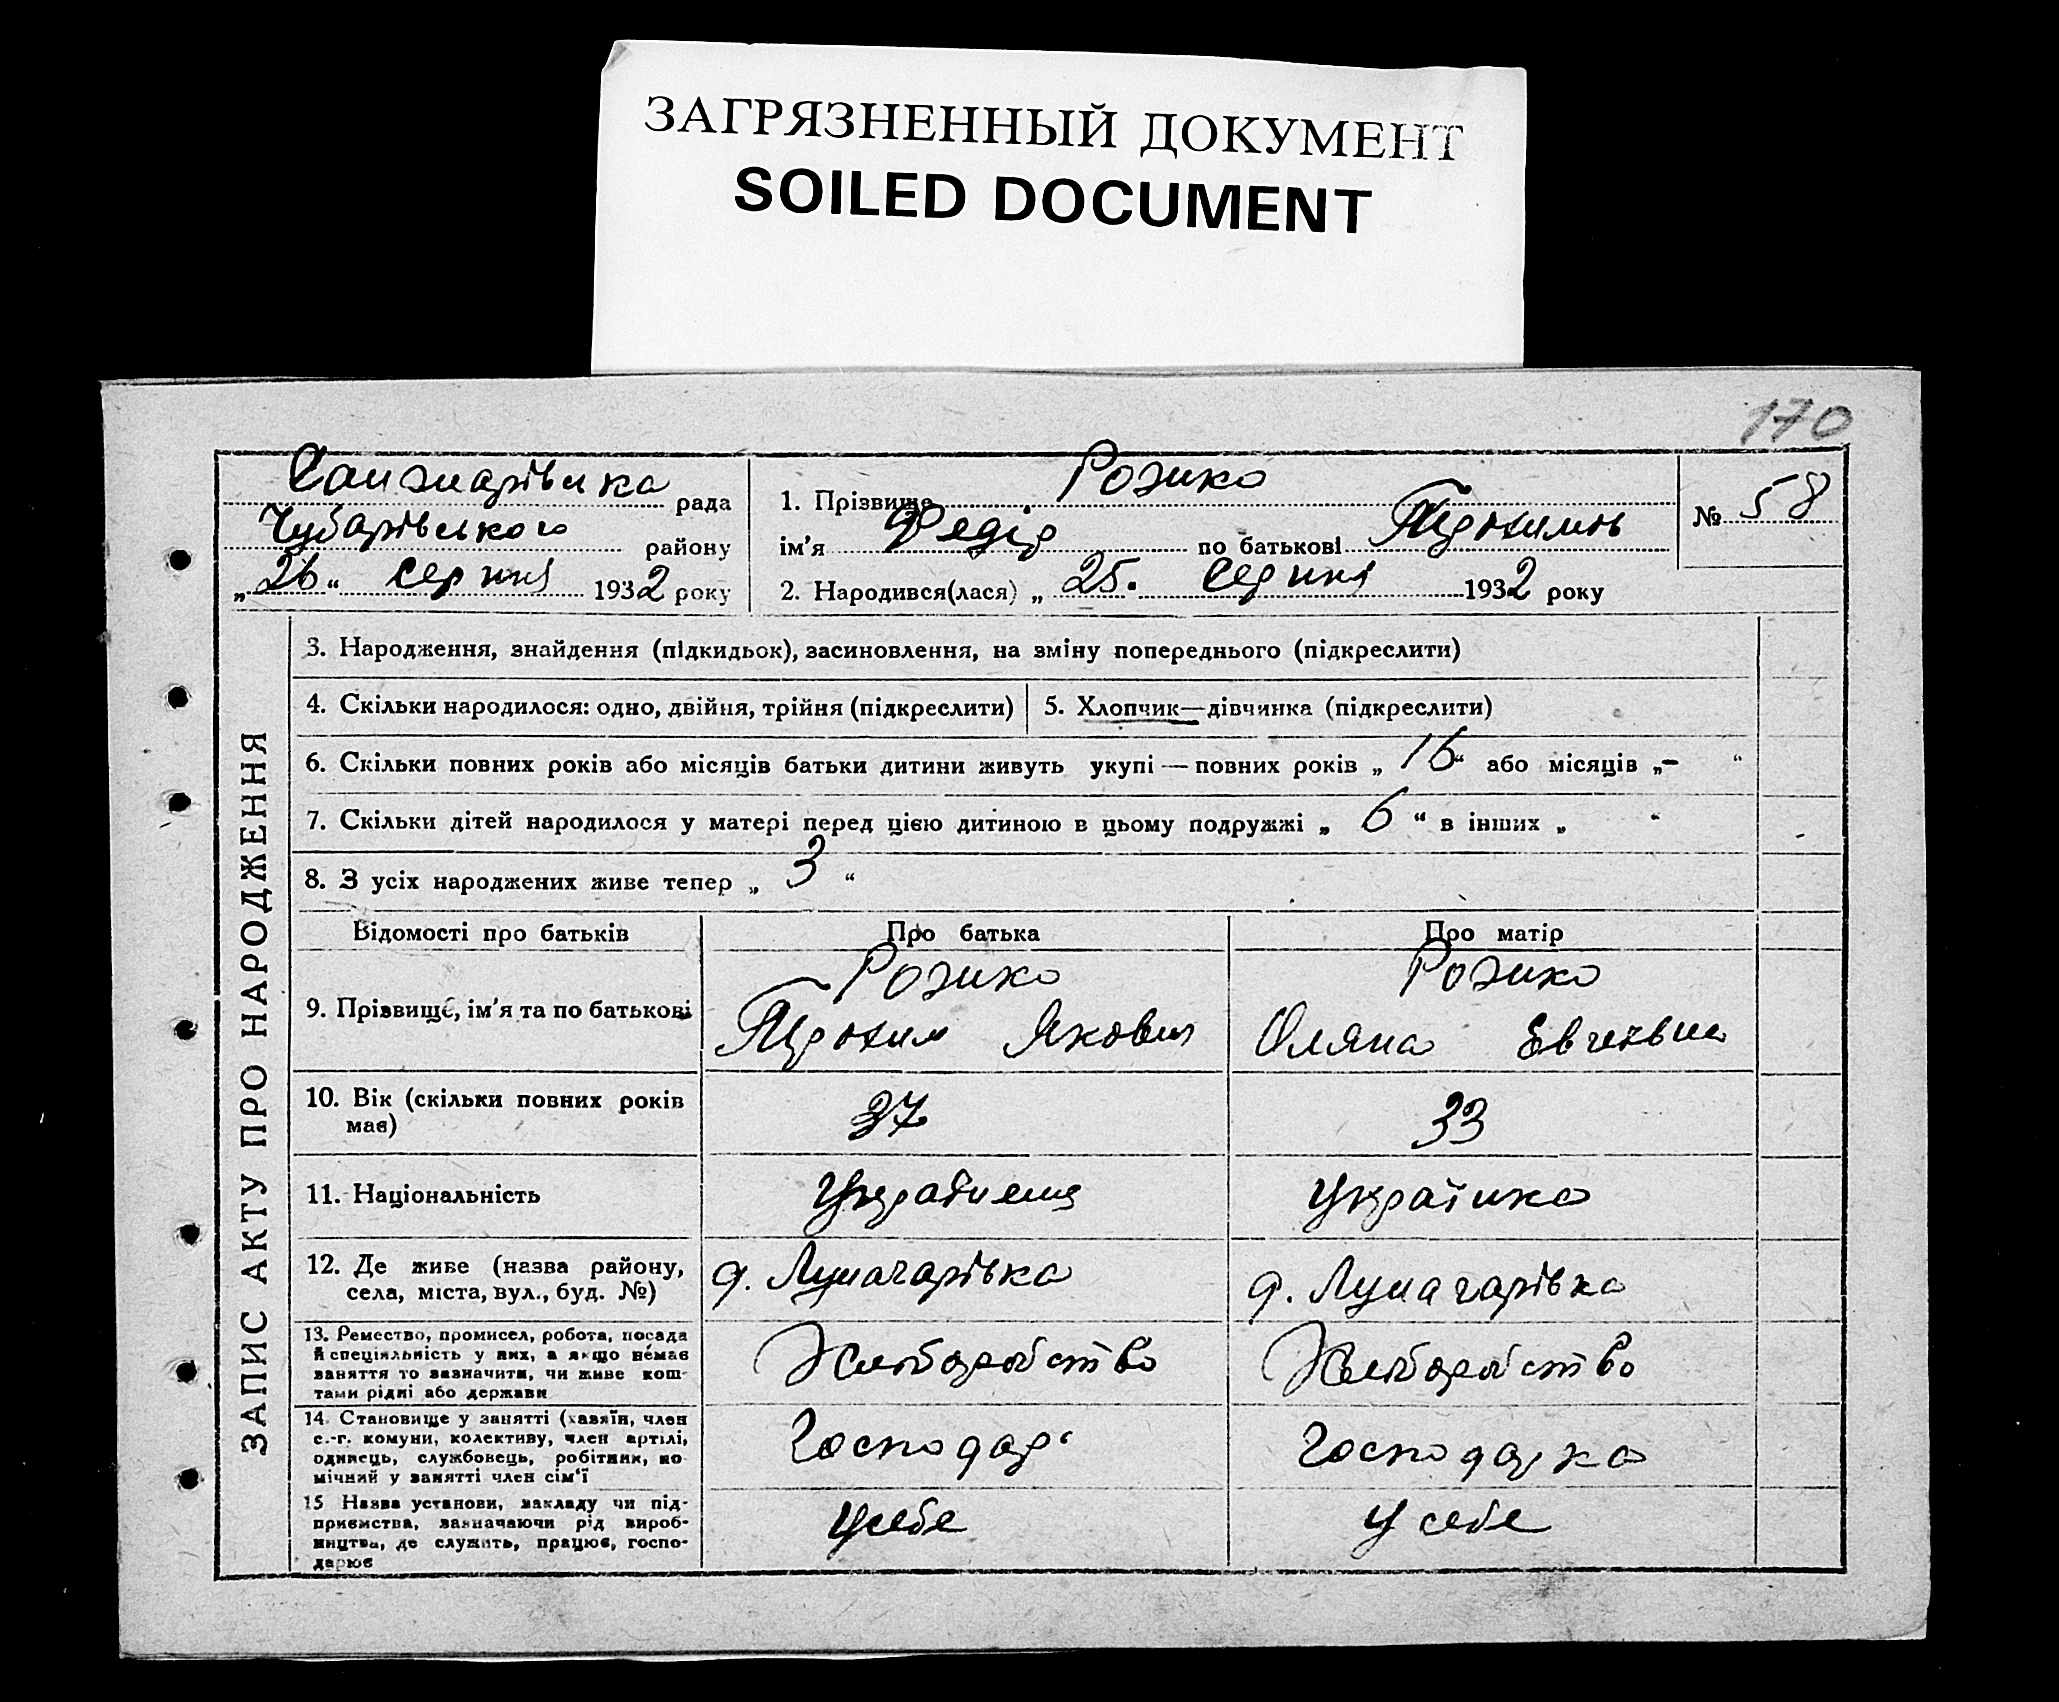 ЗАГРЯЗНЕННЫЙ ДОКУМЕНТ
SOILED DOCUMENT
170
рада
Чубарівського району
„26“ серпня 1932 року
1. Прізвище Розико
ім'я Федір по батькові Трохимов
2. Народився(лася) „25. серпня 1932 року
№ 58
ЗАПИС АКТУ ПРО НАРОДЖЕННЯ
3. Народження, знайдення (підкидьок), засиновлення, на зміну попереднього (підкреслити)
4. Скільки народилося: одно, двійня, трійня (підкреслити)
5. Хлопчик—дівчинка (підкреслити)
6. Скільки повних років або місяців батьки дитини живуть укупі — повних років „16“ або місяців „-“
7. Скільки дітей народилося у матері перед цією дитиною в цьому подружжі „6“ в інших „ “
8. З усіх народжених живе тепер „3“
Відомості про батьків
Про батька
Про матір
9. Прізвище, ім'я та по батькові
Розико
Трохим Якович
Розико
Оляна Евгенвна
10. Вік (скільки повних років
має)
37
33
11. Національність
Українець
Українка
12. Де живе (назва району,
села, міста, вул., буд. №)
с. Луначарівка
с. Луначарівка
13. Ремество, промисел, робота, посада
й спеціяльність у них, а якщо немає
заняття то зазначити, чи живе кош-
тами рідні або держави
Хліборобство
Хліборобство
14. Становище у занятті (хазяїн, член
с.-г. комуни, колективу, член артілі,
одинець, службовець, робітник, по-
мічний у занятті член сім'ї
Господар
Господарка
15 Назва установи, закладу чи під-
приємства, зазначаючи рід вироб-
ництва, де служить, працює, госпо-
дарює
У себе
У себе